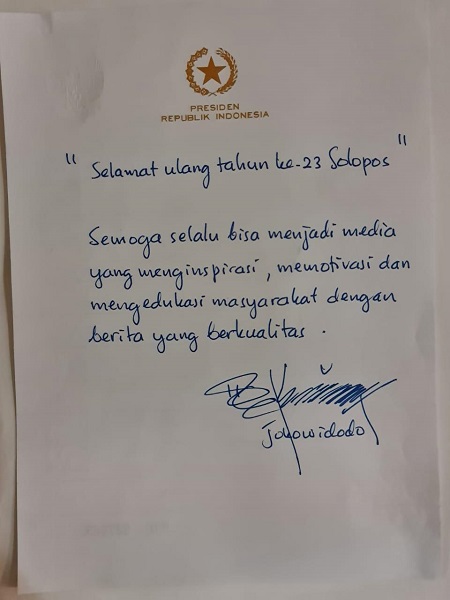 PRESIDEN
REPUBLIK INDONESIA
" Selamat ulang tahun ke-23 Solopos "
Semoga selalu bisa menjadi media
yang menginspirasi, memotivasi dan
mengedukasi masyarakat dengan
berita yang berkualitas.
Jokowidodo